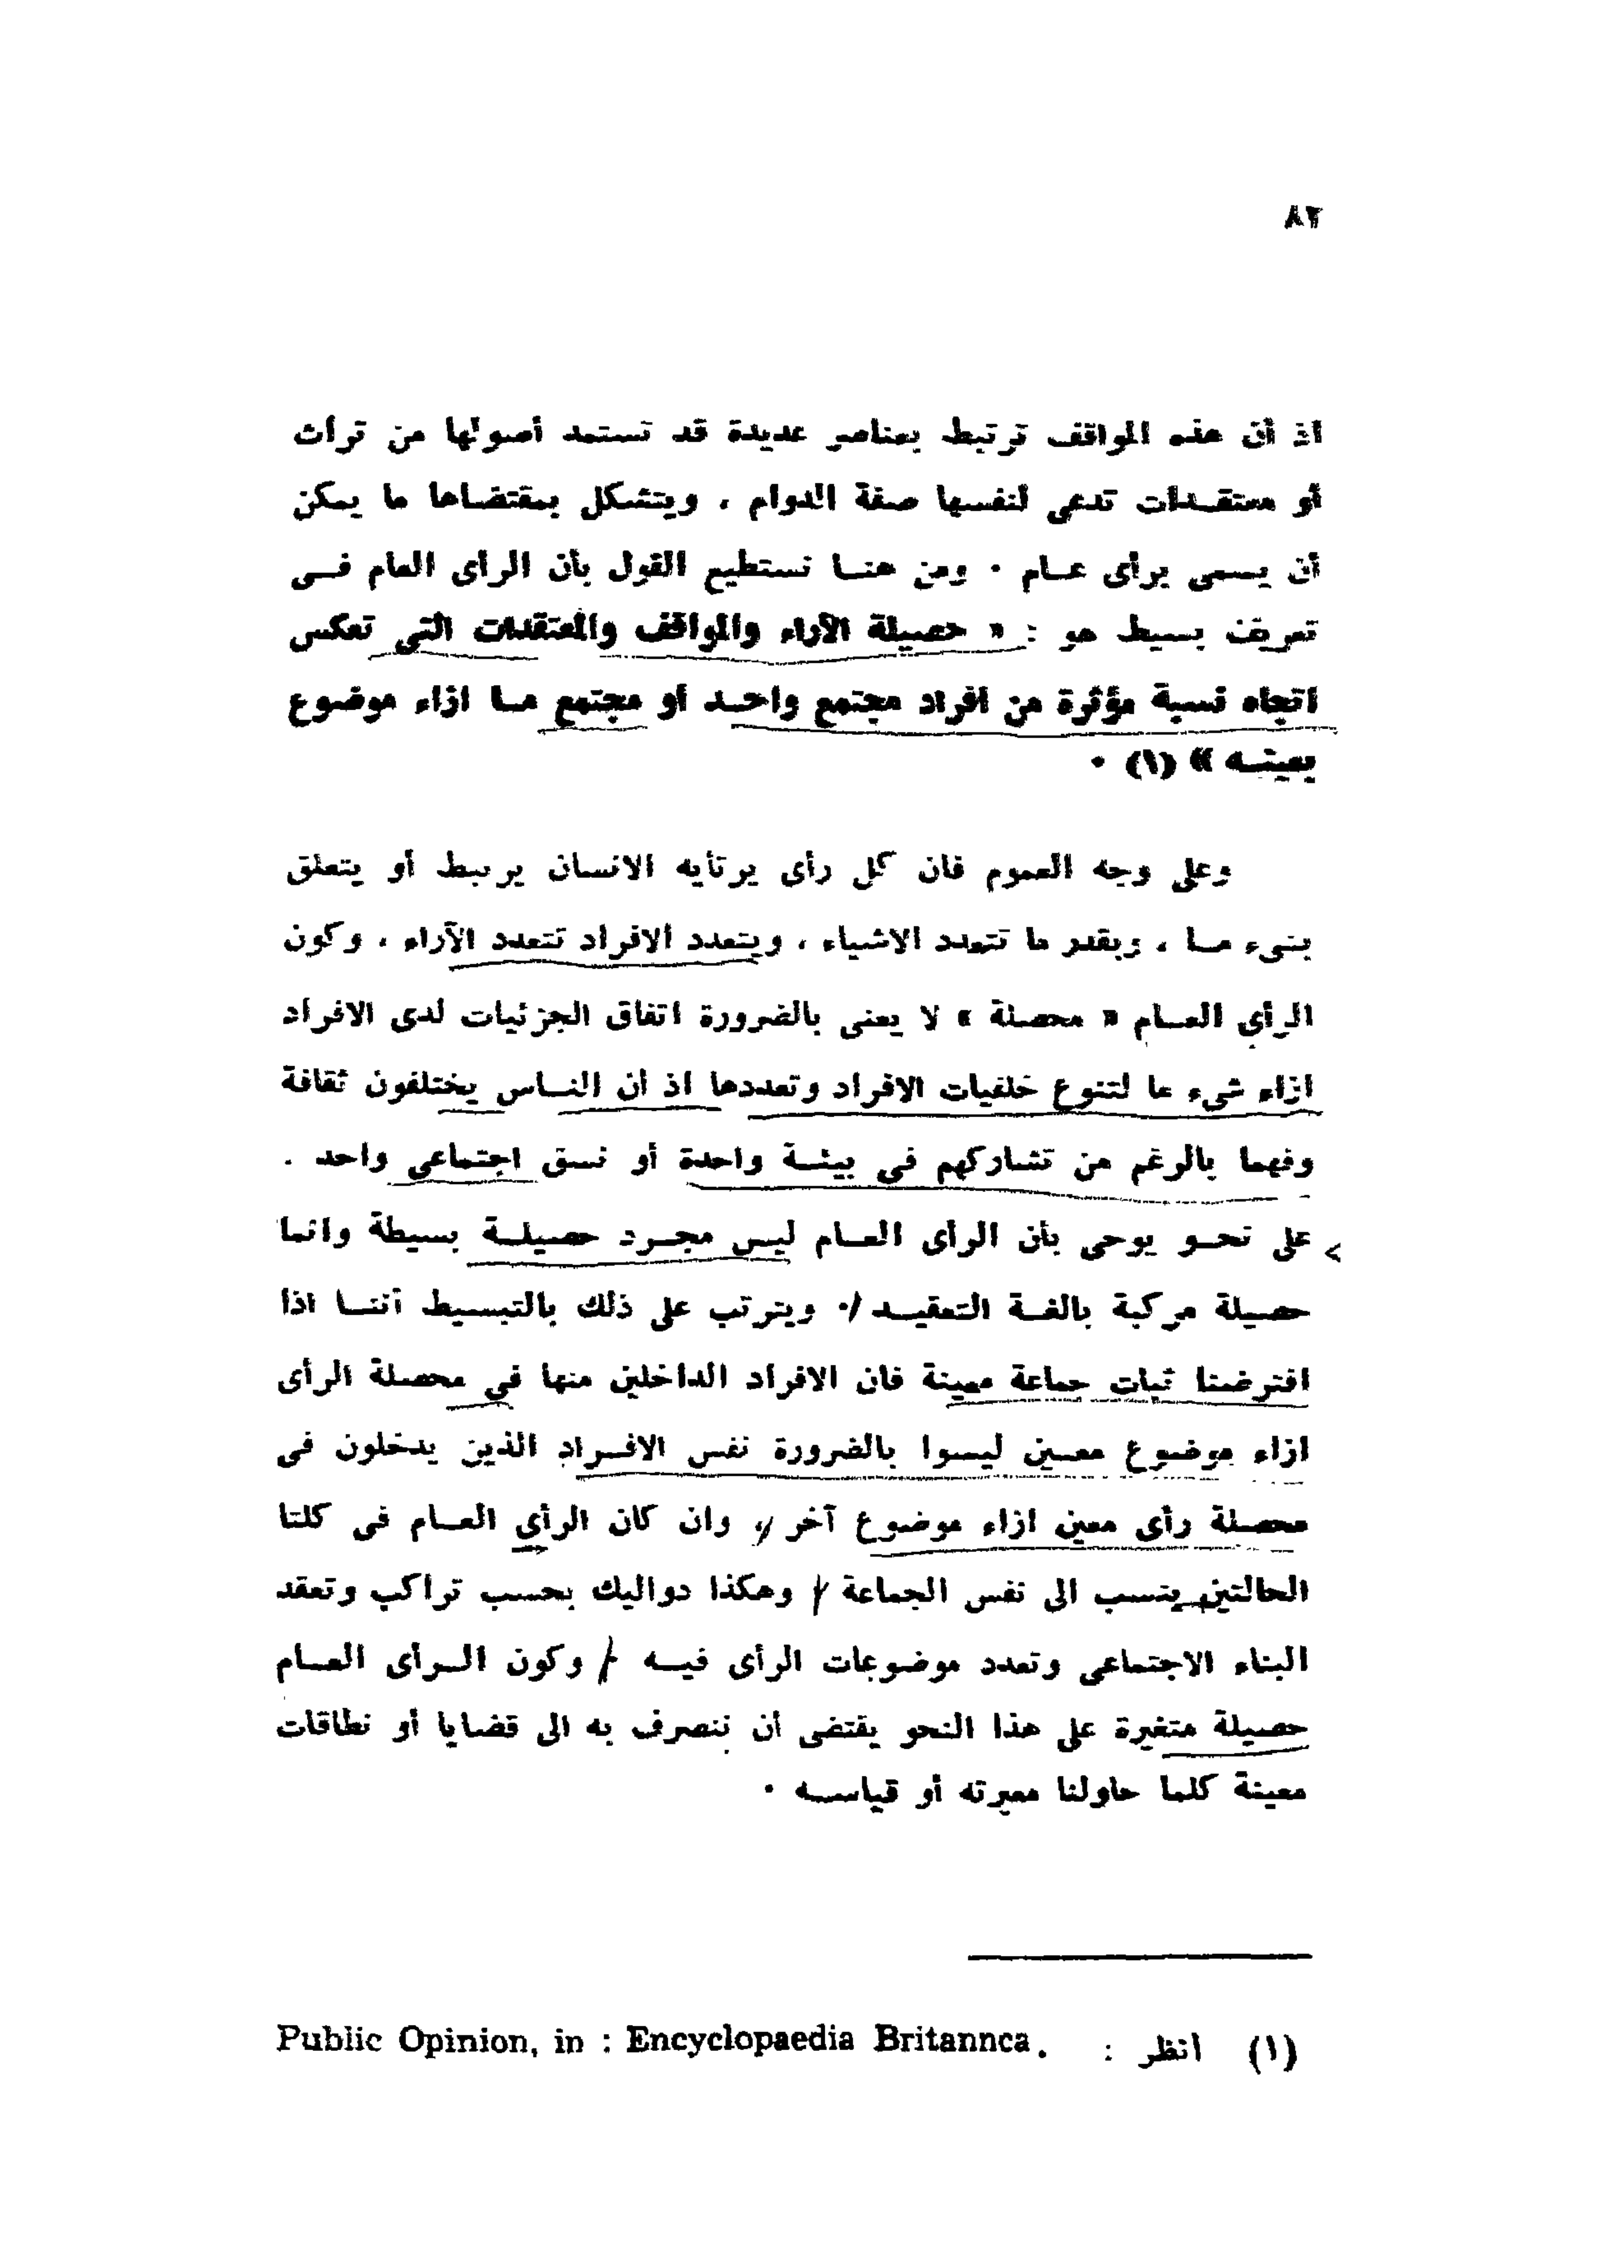 ٨٢
اذ أن هذه المواقف ترتبط بعناصر عديدة قد تستمد أصولها من تراث
أو معتقـدات تدعى لنفسها صفة الدوام ، ويتشكل بمقتضـاها ما يمكن
أن يسمى برأى عـام ٠ ومن هنـا نستطيع القول بأن الرأى العام فـى
تعريف بسيط هو : « حصيلة الآراء والمواقف والمعتقدات التى تعكس
اتجاه نسبة مؤثرة من افراد مجتمع واحـد أو مجتمع مـا ازاء موضوع
بعينـه » (١) ٠
وعلى وجه العموم فان كل رأى يرتأيه الانسان يرتبط أو يتعلق
بشىء مـا ، وبقدر ما تتعدد الاشياء ، ويتعدد الافراد تتعدد الآراء ، وكون
الرأي العـام « محصلة » لا يعنى بالضرورة اتفاق الجزئيات لدى الافراد
ازاء شىء ما لتنوع خلفيات الافراد وتعددها اذ أن النـاس يختلفون ثقافة
وفهما بالرغم من تشاركهم فى بيئـة واحدة أو نسق اجتماعى واحد ٠
على نحـو يوحى بأن الرأى العـام ليس مجـرد حصيلـة بسيطة وانما
حصيلة مركبة بالغـة التعقيـد ٠ ويترتب على ذلك بالتبسيط أننـا اذا
افترضنا ثبات جماعة معينة فان الافراد الداخلين منها فى محصلة الرأى
ازاء موضوع معـين ليسوا بالضرورة نفس الافـراد الذين يدخلون فى
محصلة رأى معين ازاء موضوع آخر ، وان كان الرأي العـام فى كلتا
الحالتين ينسب الى نفس الجماعة ، وهكذا دواليك بحسب تراكب وتعقد
البناء الاجتماعى وتعدد موضوعات الرأى فيـه ، وكون الـرأى العـام
حصيلة متغيرة على هذا النحو يقتضى أن ننصرف به الى قضايا أو نطاقات
معينة كلما حاولنا معرفته أو قياسـه ٠
(١) انظر : Public Opinion, in : Encyclopaedia Britannca.